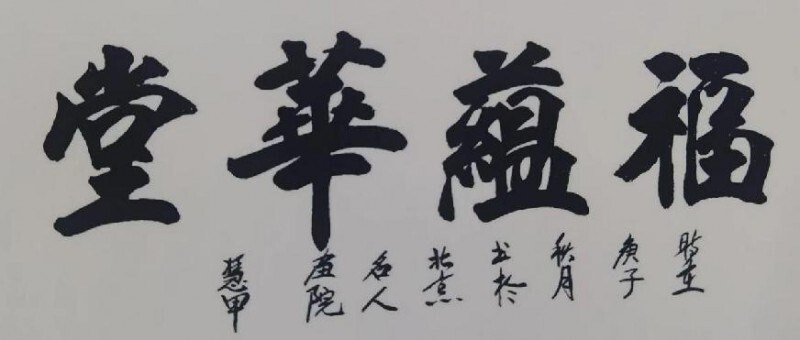 福蘊華堂
時在
庚子
秋月
書於
北京
名人
畫院
慧甲